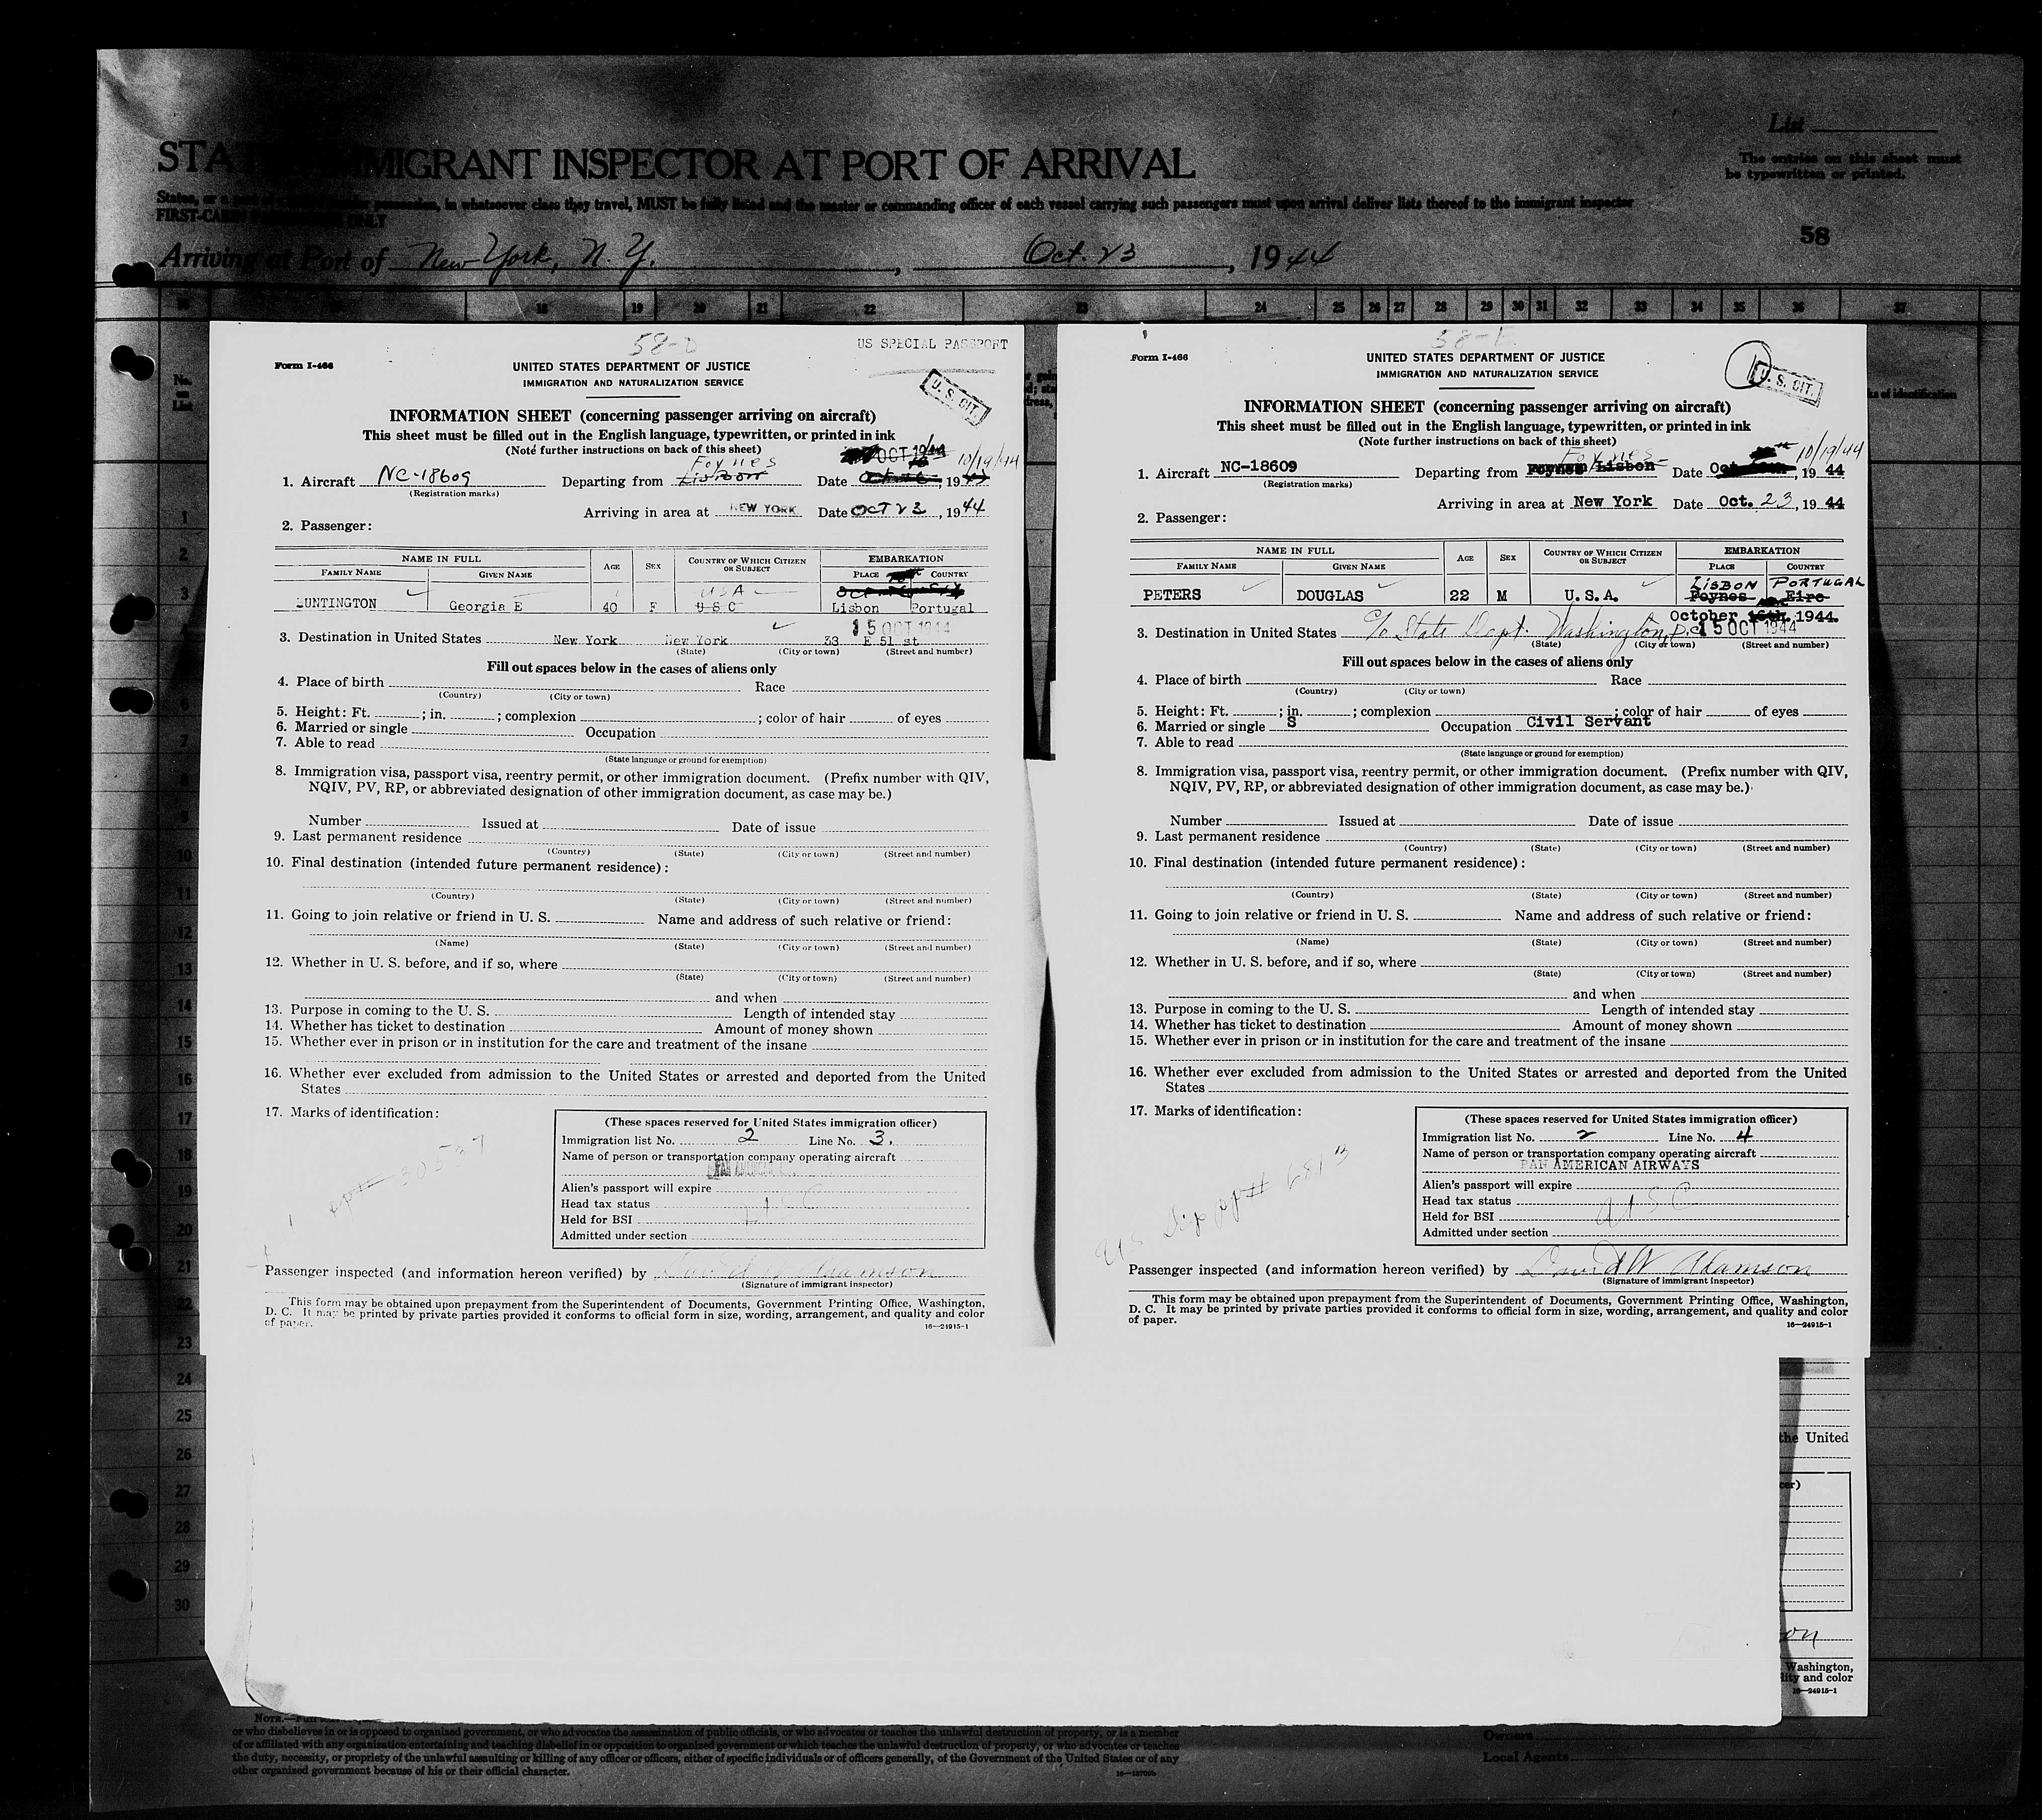 List
STATES IMMIGRANT INSPECTOR AT PORT OF ARRIVAL
The entries on this sheet must
be typewritten or printed.
States, or a port of possession, in whatsoever class they travel, MUST be fully listed and the master or commanding officer of each vessel carrying such passengers must upon arrival deliver lists thereof to the immigrant inspector
FIRST-CABIN ONLY
58
Arriving at Port of New York, N. Y. , Oct. 23 , 1944
18 19 20 21 22 23 24 25 26 27 28 29 30 31 32 33 34 35 36 37
No. on List
58-D
US SPECIAL PASSPORT
Form I-466
UNITED STATES DEPARTMENT OF JUSTICE
IMMIGRATION AND NATURALIZATION SERVICE
U. S. CIT.
INFORMATION SHEET (concerning passenger arriving on aircraft)
This sheet must be filled out in the English language, typewritten, or printed in ink
(Note further instructions on back of this sheet)
OCT 1944 10/19/44
Foynes
1. Aircraft NC-18609 Departing from Lisbon Date , 19
(Registration marks)
Arriving in area at NEW YORK Date OCT 23 , 1944
2. Passenger:
NAME IN FULL AGE SEX COUNTRY OF WHICH CITIZEN OR SUBJECT EMBARKATION
FAMILY NAME GIVEN NAME PLACE COUNTRY
USA
HUNTINGTON Georgia E 40 F U S C Lisbon Portugal
15 OCT 1944
3. Destination in United States New York New York 33 E 51 st
(State) (City or town) (Street and number)
Fill out spaces below in the cases of aliens only
4. Place of birth Race
(Country) (City or town)
5. Height: Ft. ; in. ; complexion ; color of hair of eyes
6. Married or single Occupation
7. Able to read
(State language or ground for exemption)
8. Immigration visa, passport visa, reentry permit, or other immigration document. (Prefix number with QIV,
NQIV, PV, RP, or abbreviated designation of other immigration document, as case may be.)
Number Issued at Date of issue
9. Last permanent residence
(Country) (State) (City or town) (Street and number)
10. Final destination (intended future permanent residence):
(Country) (State) (City or town) (Street and number)
11. Going to join relative or friend in U. S. Name and address of such relative or friend:
(Name) (State) (City or town) (Street and number)
12. Whether in U. S. before, and if so, where
(State) (City or town) (Street and number)
and when
13. Purpose in coming to the U. S. Length of intended stay
14. Whether has ticket to destination Amount of money shown
15. Whether ever in prison or in institution for the care and treatment of the insane
16. Whether ever excluded from admission to the United States or arrested and deported from the United
States
17. Marks of identification:
pp# 30537
(These spaces reserved for United States immigration officer)
Immigration list No. 2 Line No. 3.
Name of person or transportation company operating aircraft
PAN AMERICAN
Alien's passport will expire
Head tax status USC
Held for BSI
Admitted under section
Passenger inspected (and information hereon verified) by David W Adamson
(Signature of immigrant inspector)
This form may be obtained upon prepayment from the Superintendent of Documents, Government Printing Office, Washington,
D. C. It may be printed by private parties provided it conforms to official form in size, wording, arrangement, and quality and color
of paper.
16—24915-1
58-E
Form I-466
UNITED STATES DEPARTMENT OF JUSTICE
IMMIGRATION AND NATURALIZATION SERVICE
U. S. CIT.
INFORMATION SHEET (concerning passenger arriving on aircraft)
This sheet must be filled out in the English language, typewritten, or printed in ink
(Note further instructions on back of this sheet)
Foynes 10/19/44
1. Aircraft NC-18609 Departing from Foynes Lisbon Date Oct , 1944
(Registration marks)
Arriving in area at New York Date Oct. 23 , 1944
2. Passenger:
NAME IN FULL AGE SEX COUNTRY OF WHICH CITIZEN OR SUBJECT EMBARKATION
FAMILY NAME GIVEN NAME PLACE COUNTRY
LISBON PORTUGAL
PETERS DOUGLAS 22 M U.S.A. Foynes Eire
October 16th. 1944.
3. Destination in United States C/o State Dept. Washington, D.C. 15 OCT 1944
(State) (City or town) (Street and number)
Fill out spaces below in the cases of aliens only
4. Place of birth Race
(Country) (City or town)
5. Height: Ft. ; in. ; complexion ; color of hair of eyes
6. Married or single S Occupation Civil Servant
7. Able to read
(State language or ground for exemption)
8. Immigration visa, passport visa, reentry permit, or other immigration document. (Prefix number with QIV,
NQIV, PV, RP, or abbreviated designation of other immigration document, as case may be.)
Number Issued at Date of issue
9. Last permanent residence
(Country) (State) (City or town) (Street and number)
10. Final destination (intended future permanent residence):
(Country) (State) (City or town) (Street and number)
11. Going to join relative or friend in U. S. Name and address of such relative or friend:
(Name) (State) (City or town) (Street and number)
12. Whether in U. S. before, and if so, where
(State) (City or town) (Street and number)
and when
13. Purpose in coming to the U. S. Length of intended stay
14. Whether has ticket to destination Amount of money shown
15. Whether ever in prison or in institution for the care and treatment of the insane
16. Whether ever excluded from admission to the United States or arrested and deported from the United
States
17. Marks of identification:
US Dip pp# 6813
(These spaces reserved for United States immigration officer)
Immigration list No. 2 Line No. 4
Name of person or transportation company operating aircraft
PAN AMERICAN AIRWAYS
Alien's passport will expire
Head tax status USC
Held for BSI
Admitted under section
Passenger inspected (and information hereon verified) by David W Adamson
(Signature of immigrant inspector)
This form may be obtained upon prepayment from the Superintendent of Documents, Government Printing Office, Washington,
D. C. It may be printed by private parties provided it conforms to official form in size, wording, arrangement, and quality and color
of paper.
16—24915-1
ks of identification
1
2
3
6
7
9
10
11
12
13
14
15
16
17
18
19
20
21
22
23
24
25
26
27
28
29
30
the United
cer)
on
Washington,
lity and color
16—24915-1
NOTE.—
or who disbelieves in or is opposed to organized government, or who advocates the assassination of public officials, or who advocates or teaches the unlawful destruction of property, or is a member
of or affiliated with any organization entertaining and teaching disbelief in or opposition to organized government or which teaches the unlawful destruction of property, or who advocates or teaches
the duty, necessity, or propriety of the unlawful assaulting or killing of any officer or officers, either of specific individuals or of officers generally, of the Government of the United States or of any
other organized government because of his or their official character.
Owners
Local Agents